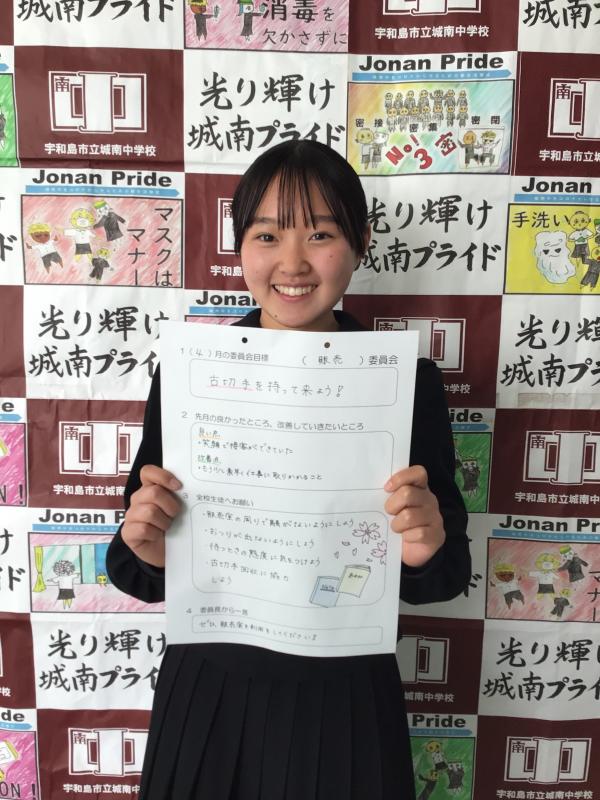 消毒を
欠かさずに
宇和島市立城南中学校
城南プライド
Jonan Pride
光り輝け
城南プライド
Jonan Pride
密接
密集
密閉
No! 3密
宇和島市立城南中学校
宇和島市立城南中学校
Jonan Pride
マスクは
マナー
光り輝け
城南プライド
手洗い
光り輝け
城南プライド
Jonan Pride
1（4）月の委員会目標　（　販売　）委員会
古切手を持って来よう!
2　先月の良かったところ、改善していきたいところ
良い点
・笑顔で接客ができていた
改善点
・もう少し素早く仕事に取りかかること
3　全校生徒へお願い
・販売室の周りで騒がないようにしよう
・おつりが出ないようにしよう
・待つときの態度に気をつけよう
・古切手回収に協力
しよう
4　委員長から一言
ぜひ、販売室を利用をしてください!!
光り輝け
城南プライド
宇和島市立城南中学校
Jonan Pride
光り輝け
城南プライド
光り輝け
城南プライド
宇和島市立城南中学校
Jonan Pride
宇和島市立城南中学校
Jonan Pride
宇和島市立城南中学校